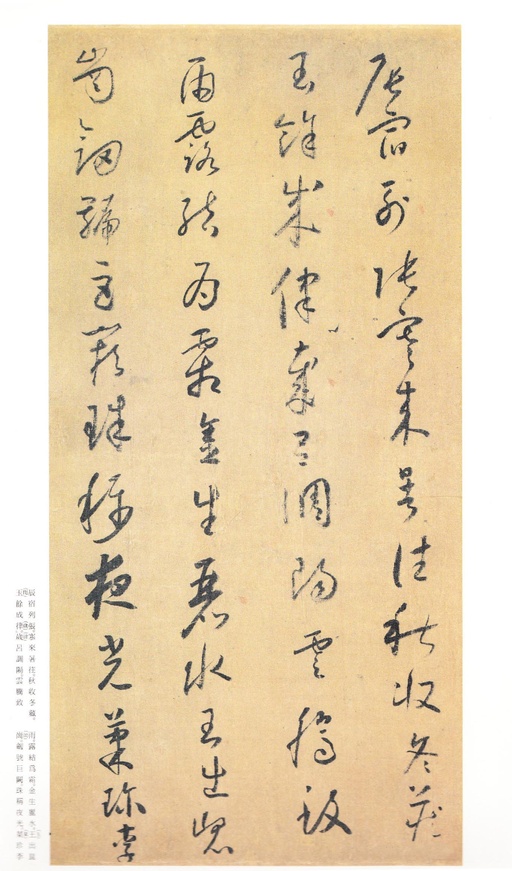 辰宿列張寒來暑往秋收冬藏
玉餘成律歲呂調陽雲騰致
雨露結為霜金生麗水玉出崑
崗劍號巨闕珠稱夜光菓珍李
辰宿列張寒來暑往、秋收冬藏、
玉餘成律歲呂調陽雲騰致
雨露結爲霜金生麗水玉出崑
崗劍號巨闕珠稱夜光菓珍李